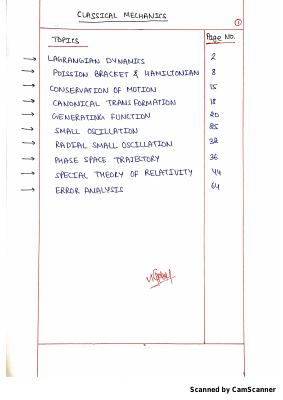 CLASSICAL MECHANICS
1
TOPICS Page No.
→ LAGRANGIAN DYNAMICS 2
→ POISSION BRACKET & HAMILTONIAN 8
→ CONSERVATION OF MOTION 15
→ CANONICAL TRANSFORMATION 18
→ GENERATING FUNCTION 20
→ SMALL OSCILLATION 25
→ RADIAL SMALL OSCILLATION 32
→ PHASE SPACE TRAJECTORY 36
→ SPECIAL THEORY OF RELATIVITY 44
→ ERROR ANALYSIS 64
Scanned by CamScanner